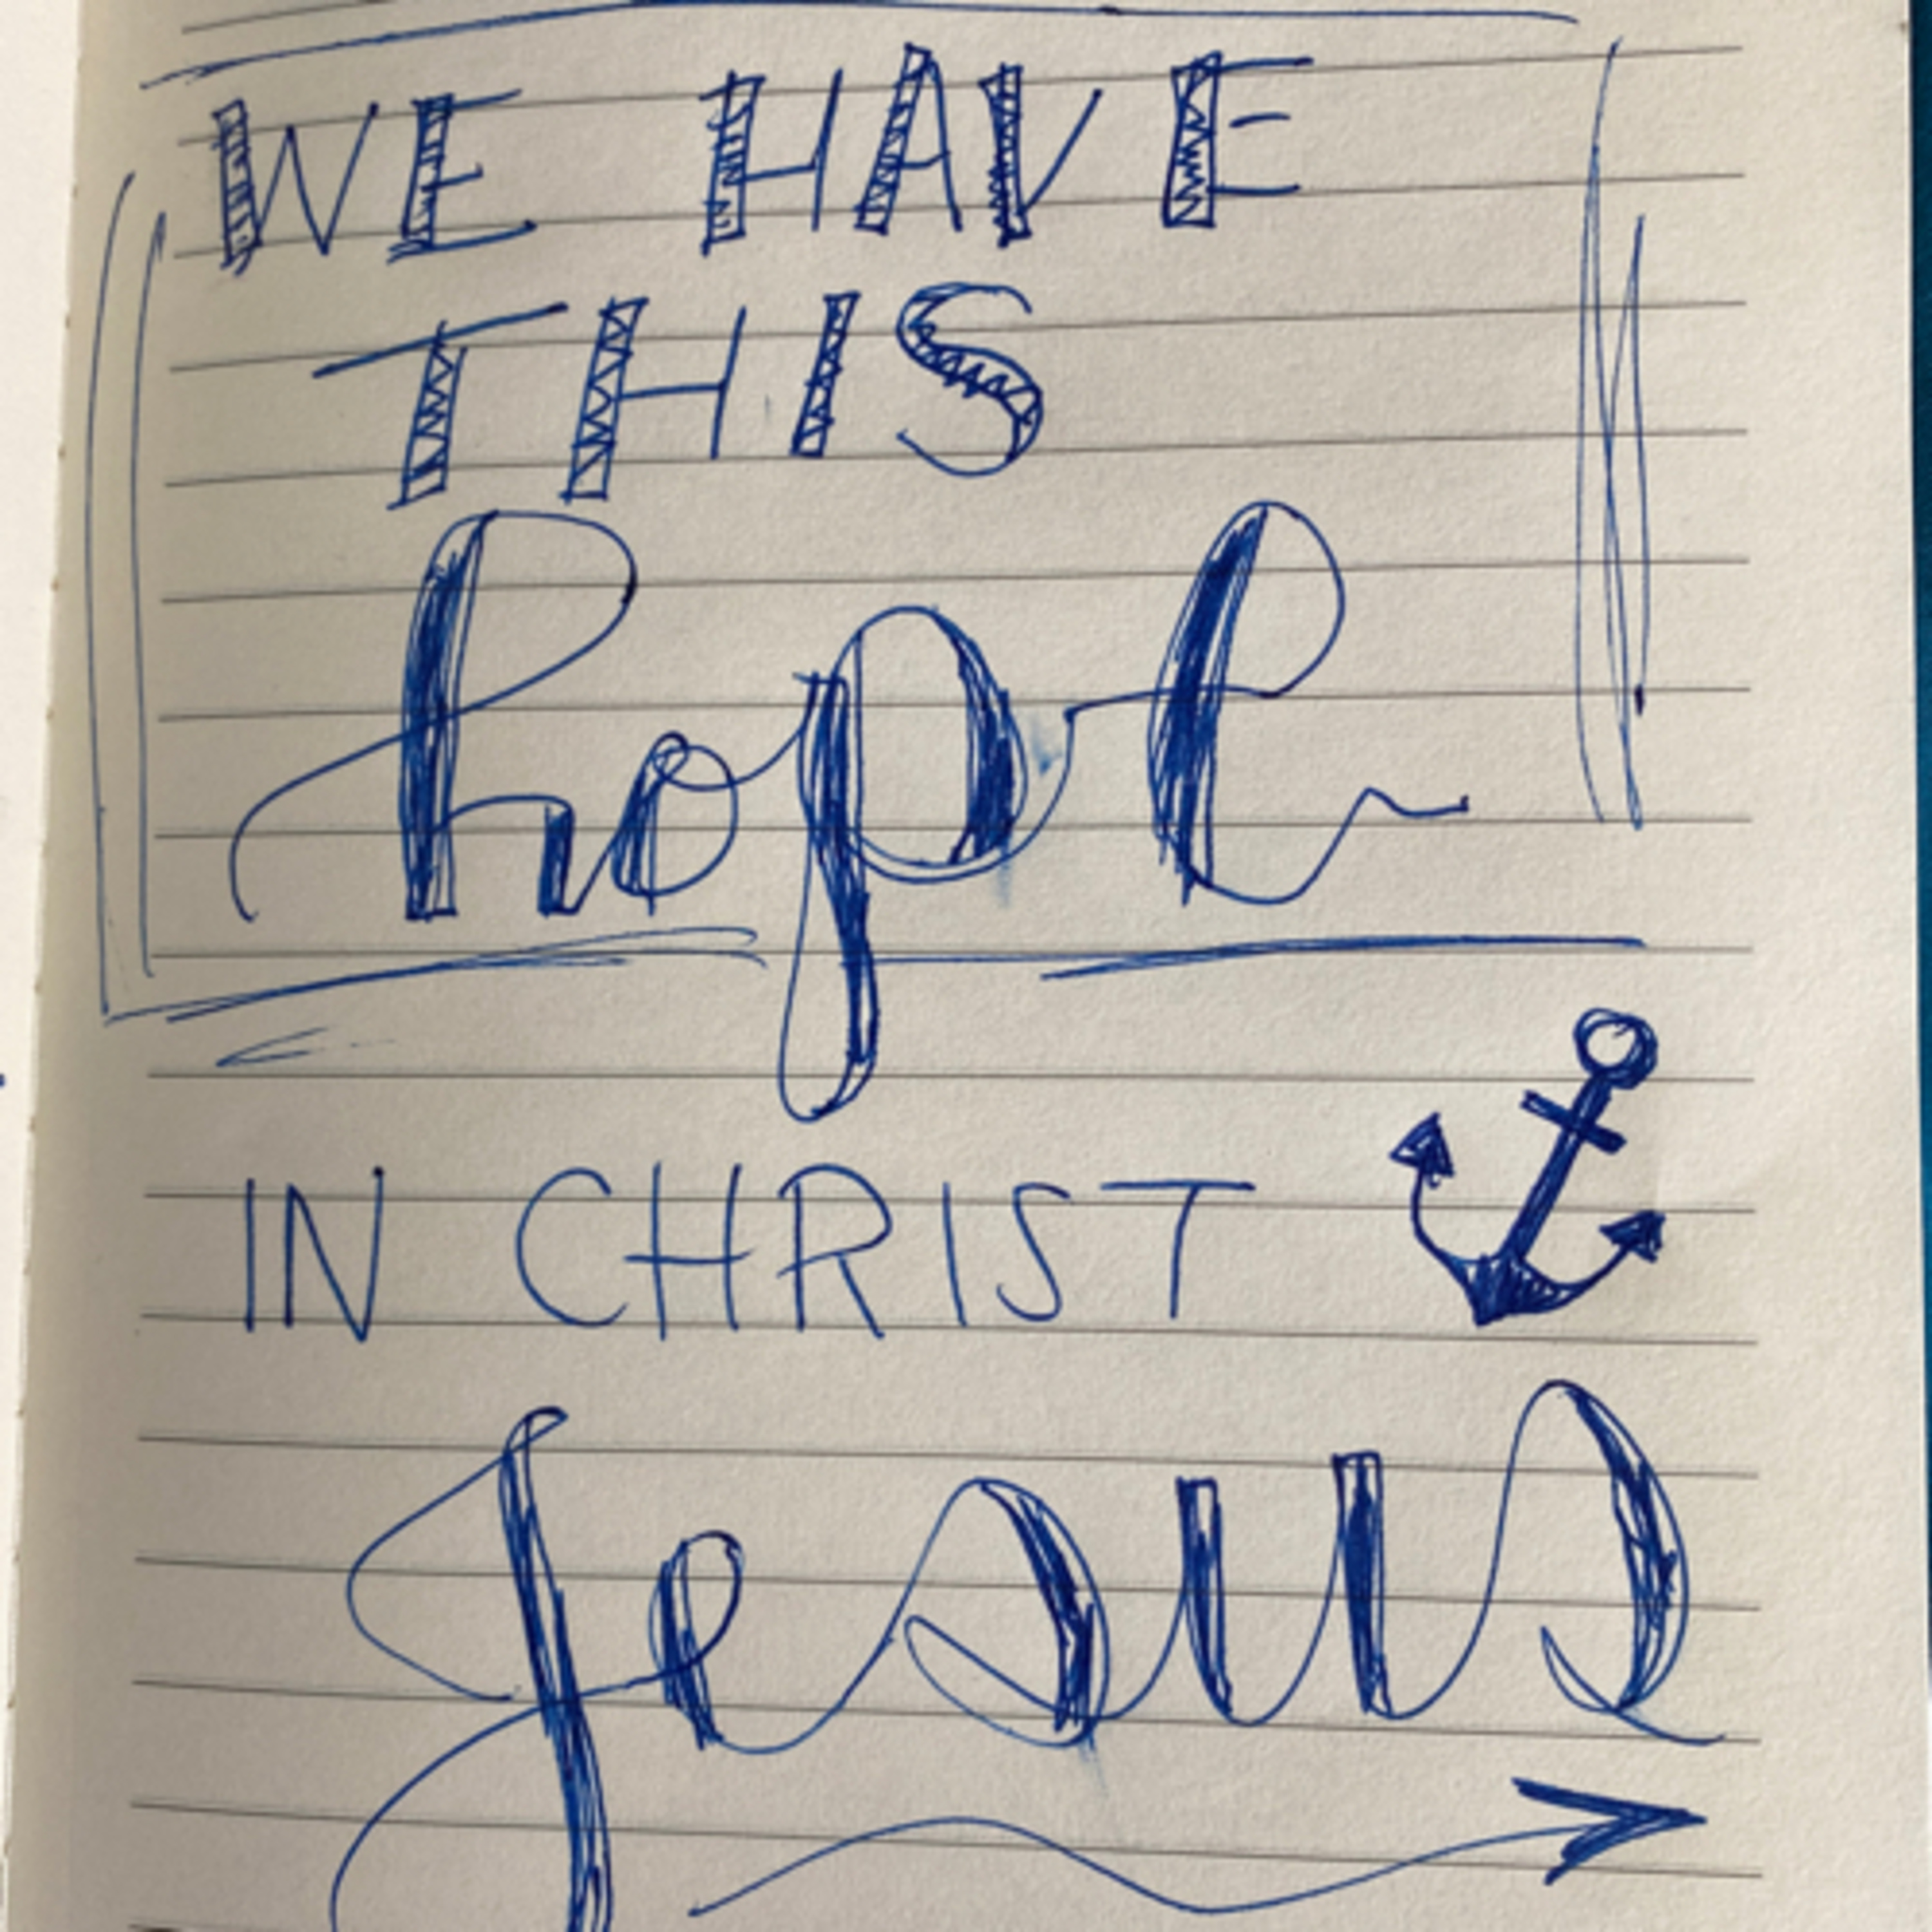 WE HAVE
THIS
hope
IN CHRIST
Jesus